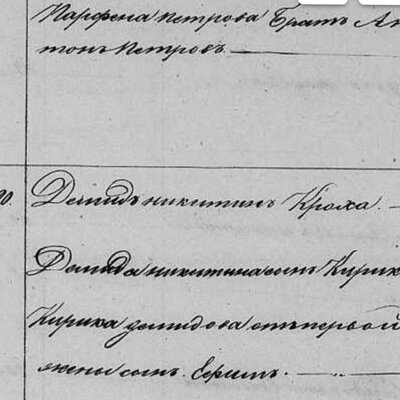 Парфена Петрова Братъ Ан
тонъ Петровъ
20. Демидъ никитинъ Кроха.
Демида никитина сынъ Кирик
Кирика демидова отъ первой
жены сынъ. Ефимъ.